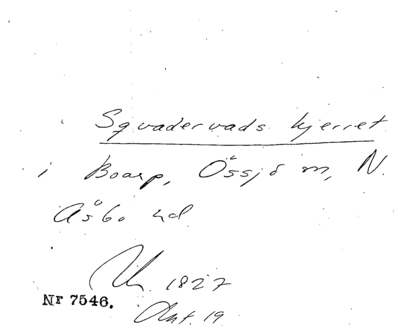 Sqvadervads kjerret
i Boarp, Össjö m, N.
Åsbo hd
1827
Nr 7546.
Ant. 19